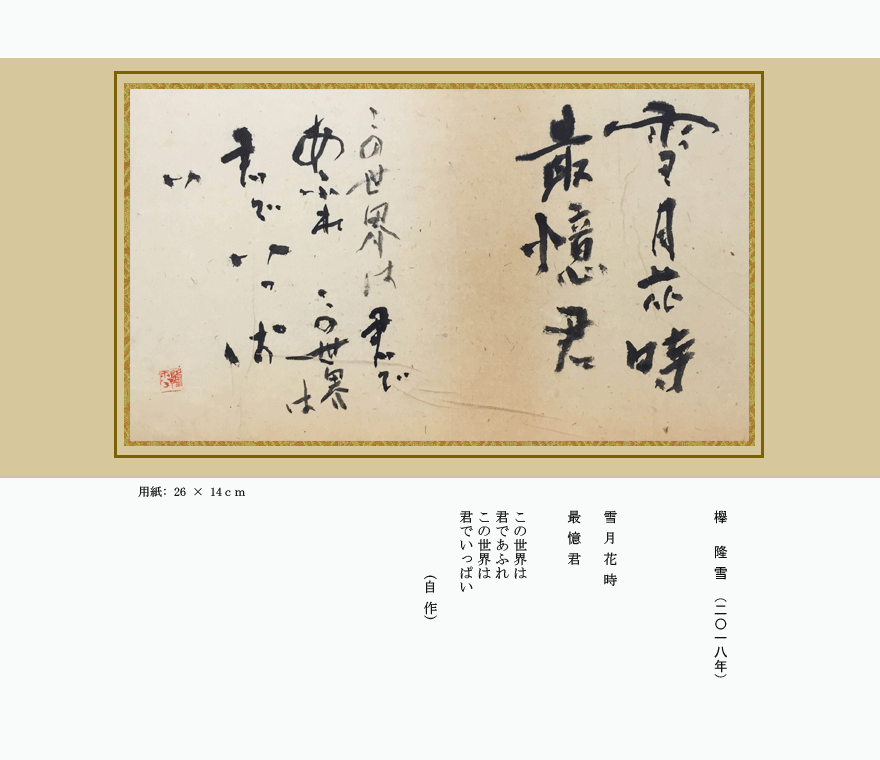 雪月花時
最憶君
この世界は君で
あふれ この世界は
君でいっぱ
い
用紙: 26 × 14cm
欅 隆雪 (二〇一八年)
雪月花時
最憶君
この世界は
君であふれ
この世界は
君でいっぱい
(自作)